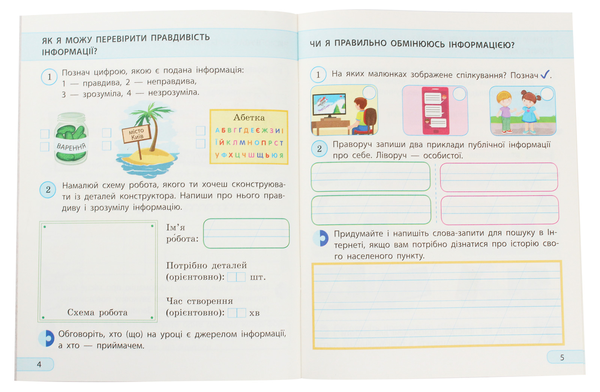 ЯК Я МОЖУ ПЕРЕВІРИТИ ПРАВДИВІСТЬ
ІНФОРМАЦІЇ?
1 Познач цифрою, якою є подана інформація:
1 — правдива, 2 — неправдива,
3 — зрозуміла, 4 — незрозуміла.
ВАРЕННЯ
місто
Київ
Абетка
АБВГҐДЕЄЖЗИІ
ЇЙКЛМНОПРСТ
УФХЦЧШЩЬЮЯ
2 Намалюй схему робота, якого ти хочеш сконструюва-
ти із деталей конструктора. Напиши про нього прав-
диву і зрозумілу інформацію.
Ім'я
робота:
Потрібно деталей
(орієнтовно): шт.
Час створення
(орієнтовно): хв
Схема робота
Обговоріть, хто (що) на уроці є джерелом інформації,
а хто — приймачем.
4
ЧИ Я ПРАВИЛЬНО ОБМІНЮЮСЬ ІНФОРМАЦІЄЮ?
1 На яких малюнках зображене спілкування? Познач ✓.
2 Праворуч запиши два приклади публічної інформації
про себе. Ліворуч — особистої.
Придумайте і напишіть слова-запити для пошуку в Ін-
тернеті, якщо вам потрібно дізнатися про історію сво-
го населеного пункту.
5